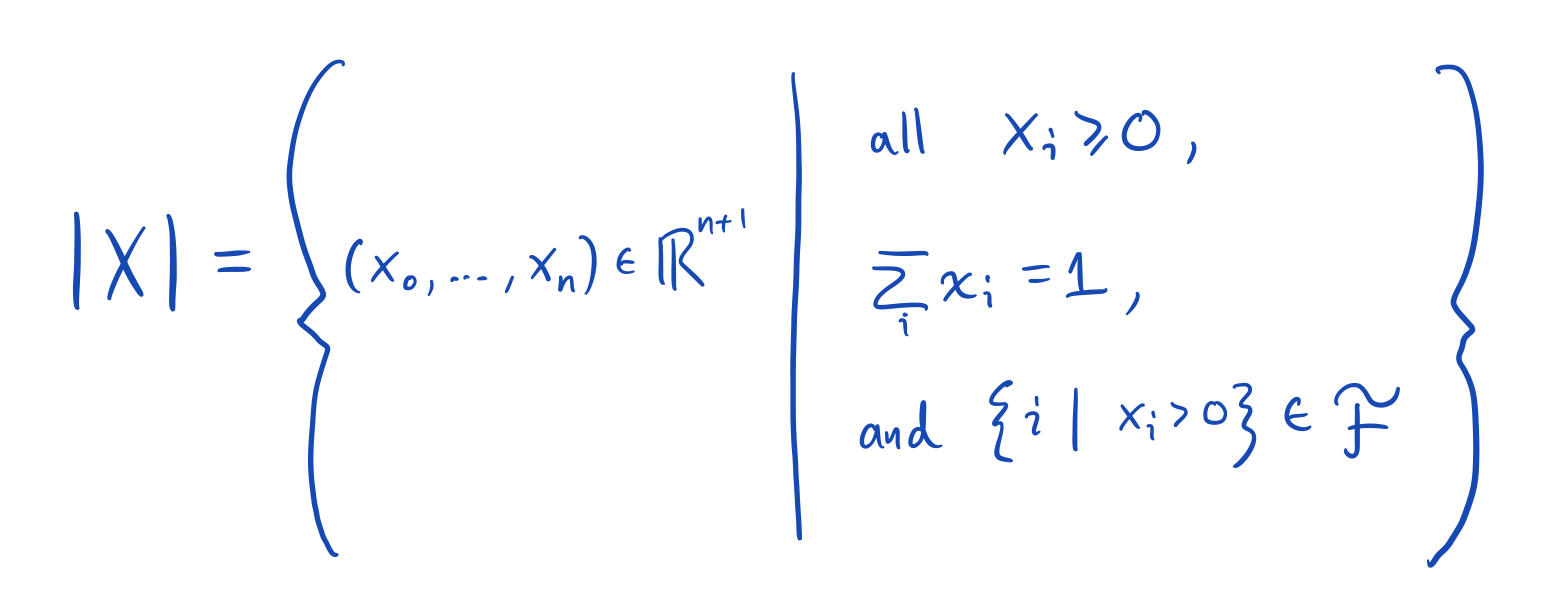 |X| = { (x₀, ..., xₙ) ∈ ℝⁿ⁺¹ | all xᵢ ⩾ 0,
∑ᵢ xᵢ = 1,
and {i | xᵢ > 0} ∈ ℱ }